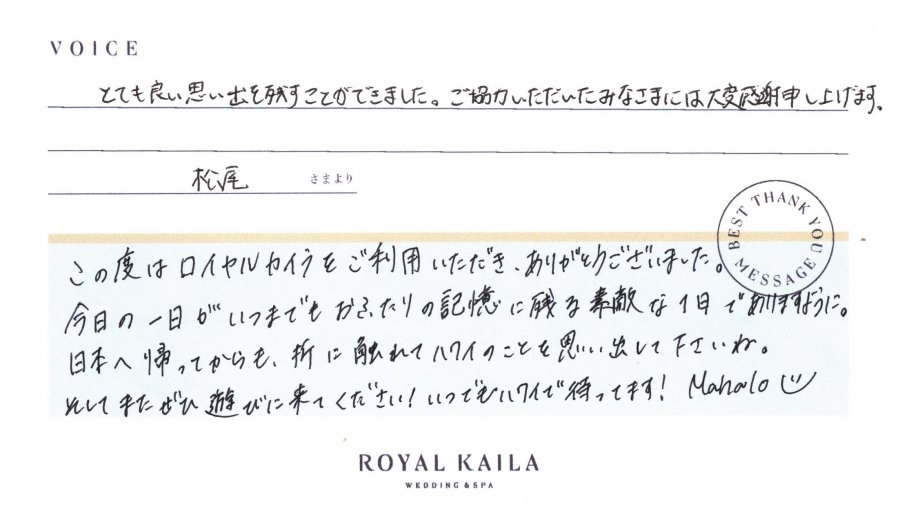 VOICE
とても良い思い出を残すことができました。ご協力いただいたみなさまには大変感謝申し上げます。
松尾 さまより
BEST THANK YOU MESSAGE
この度はロイヤルカイラをご利用いただき、ありがとうございました。
今日の一日がいつまでもおふたりの記憶に残る素敵な1日でありますように。
日本へ帰ってからも、折に触れてハワイのことを思い出して下さいね。
そしてまたぜひ遊びに来てください！いつでもハワイで待ってます！ Mahalo
ROYAL KAILA
WEDDING & SPA